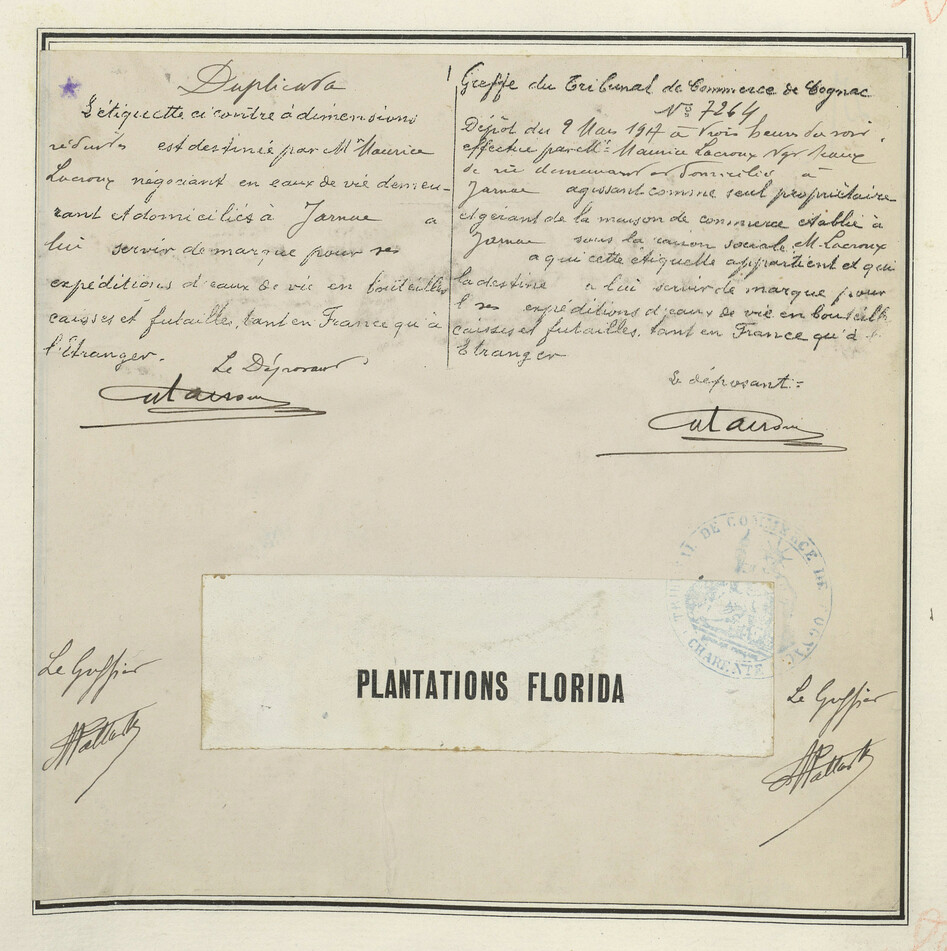 Duplicata
L'étiquette ci contre à dimensions
réduites est destinée par M Maurice
Lacroux négociant en eaux de vie demeu-
rant et domiciliés à Jarnac a
lui servir de marque pour ses
expéditions d'eaux de vie en bouteilles
caisses et futailles, tant en France qu'à
l'Etranger.
Le Déposant
Greffe du Tribunal de Commerce de Cognac
No 7264
Dépôt du 9 Mars 1917 à trois heures du soir
effectué par M. Maurice Lacroux Ngt eaux
de vie demeurant et domicilié à
Jarnac agissant comme seul propriétaire
et gérant de la maison de commerce établie à
Jarnac sous la raison sociale M. Lacroux
a qui cette étiquette appartient et qui
la destine a lui servir de marque pour
ses expéditions d'eaux de vie en bouteilles
caisses et futailles, tant en France qu'à
Etranger
Le déposant =
TRIBUNAL DE COMMERCE DE COGNAC
CHARENTE
PLANTATIONS FLORIDA
Le Greffier
Le Greffier